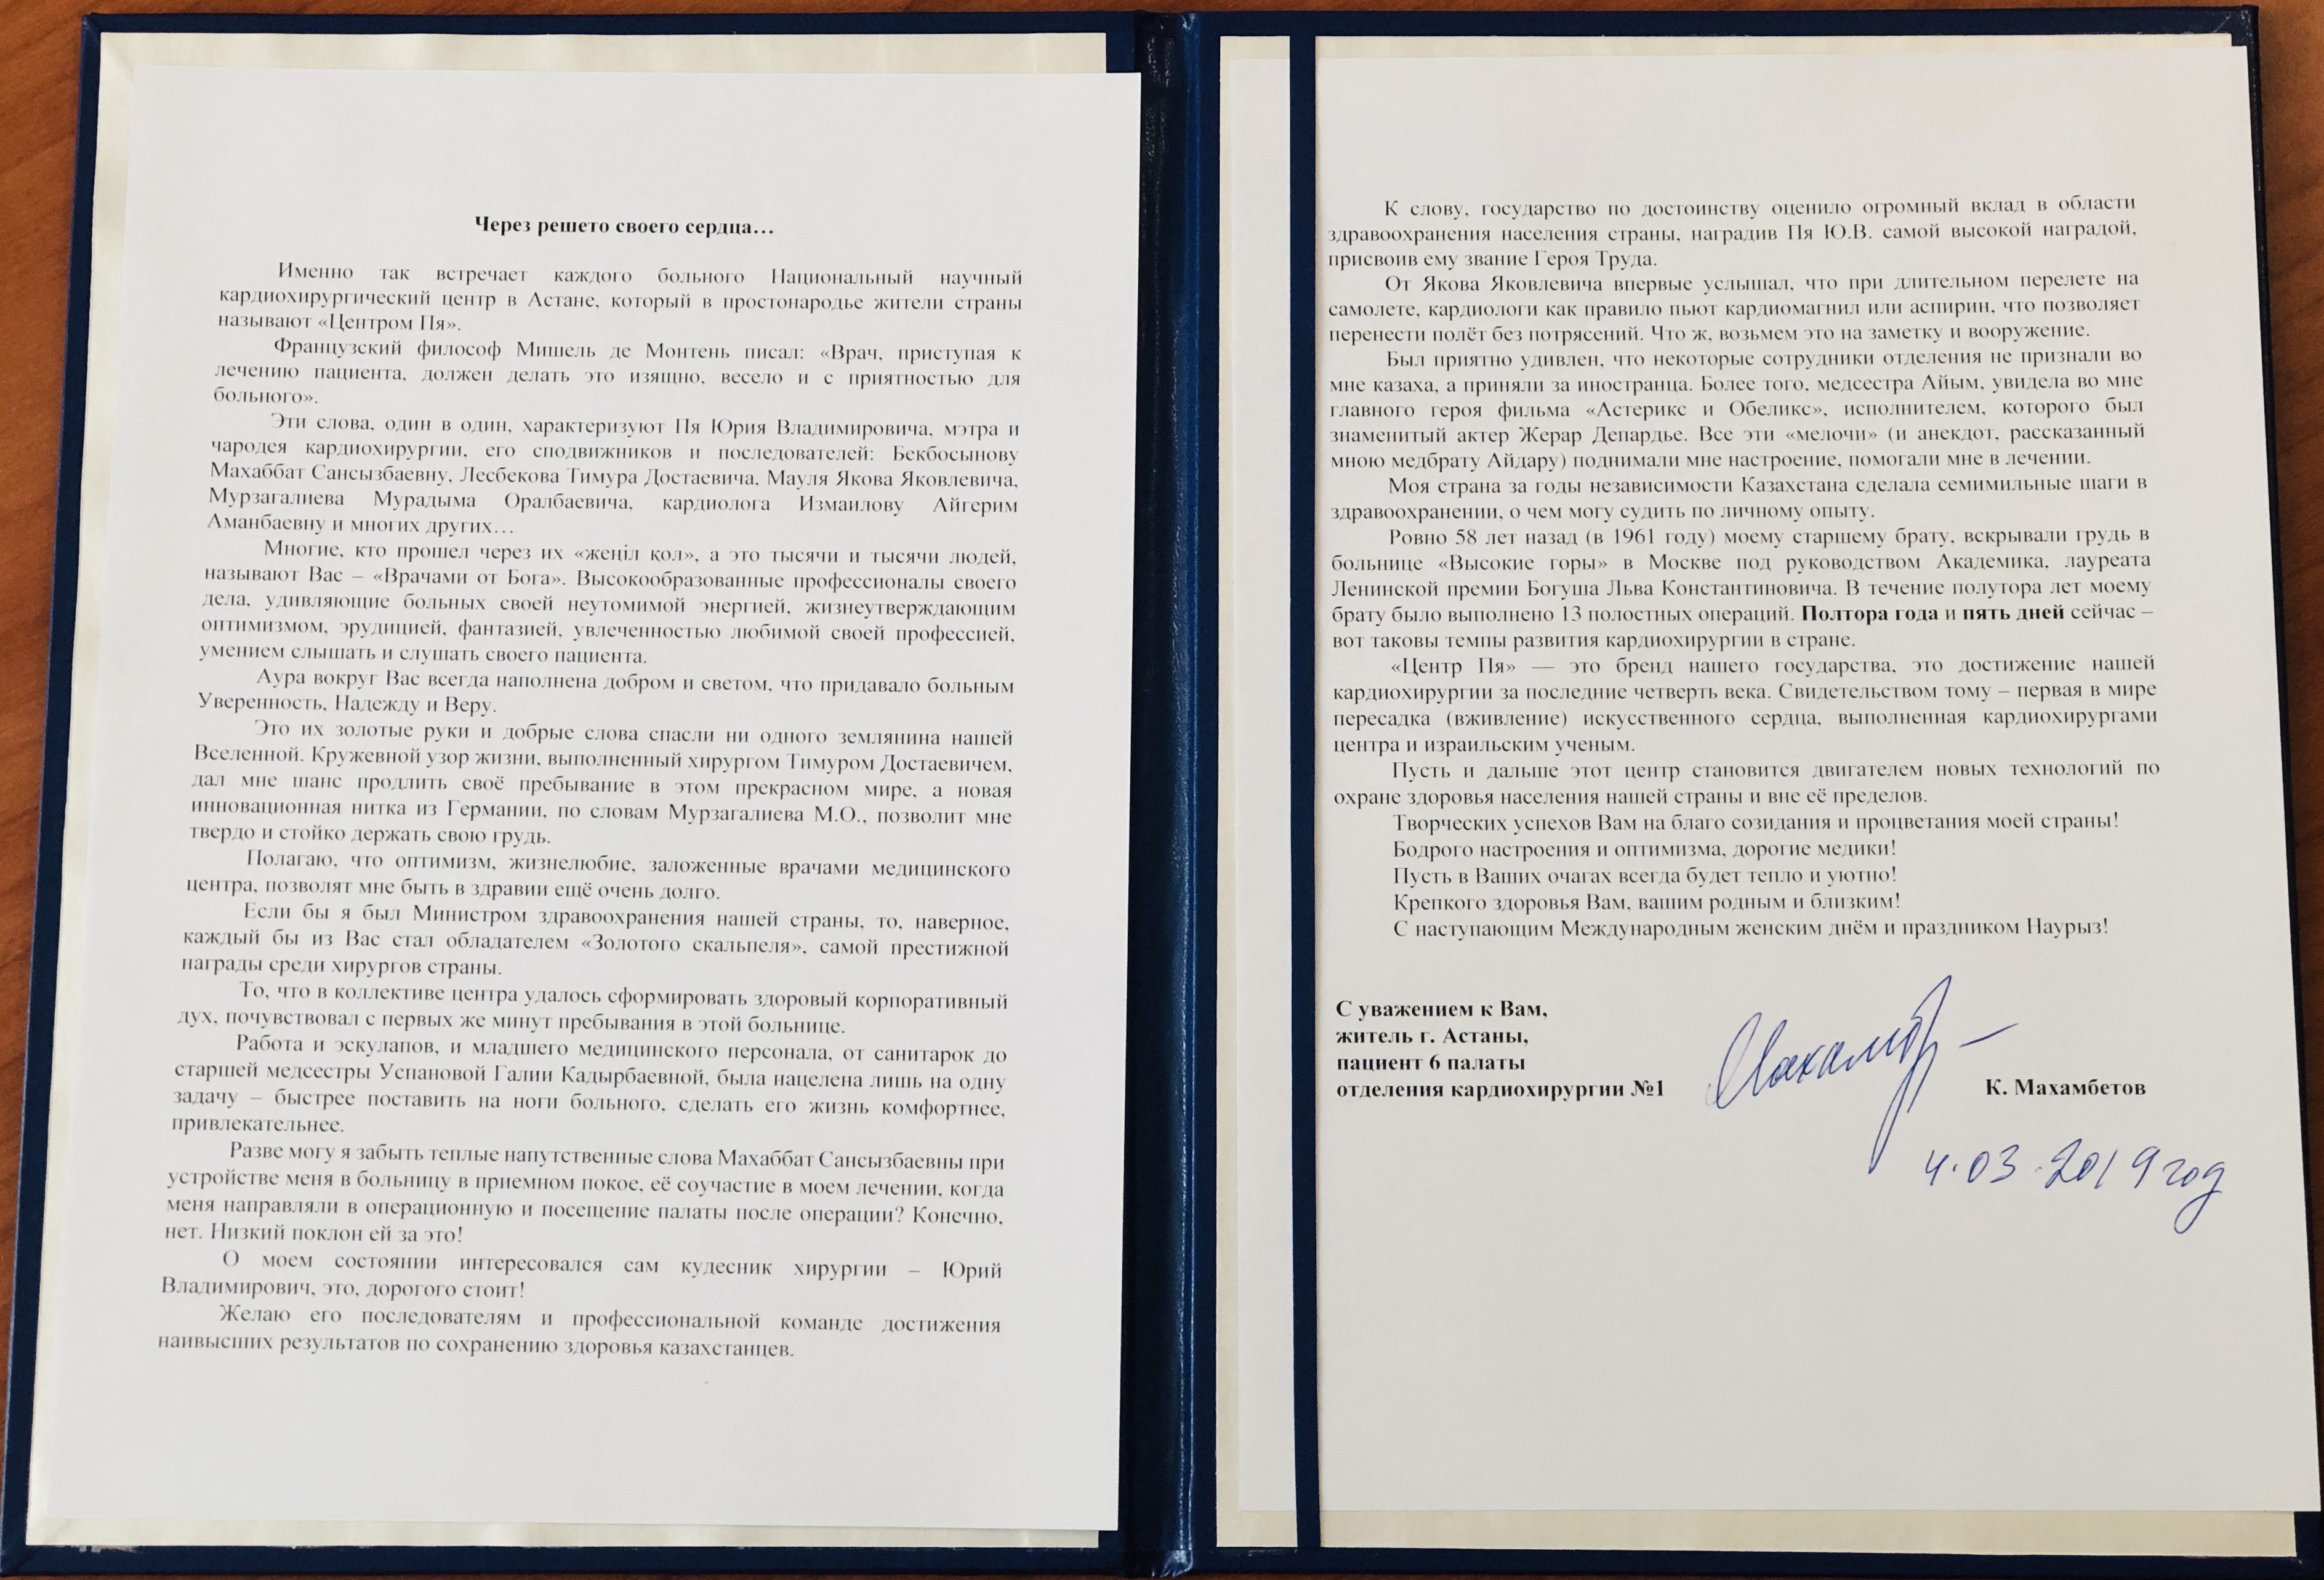 Через решето своего сердца…
Именно так встречает каждого больного Национальный научный
кардиохирургический центр в Астане, который в простонародье жители страны
называют «Центром Пя».
Французский философ Мишель де Монтень писал: «Врач, приступая к
лечению пациента, должен делать это изящно, весело и с приятностью для
больного».
Эти слова, один в один, характеризуют Пя Юрия Владимировича, мэтра и
чародея кардиохирургии, его сподвижников и последователей: Бекбосынову
Махаббат Сансызбаевну, Лесбекова Тимура Достаевича, Мауля Якова Яковлевича,
Мурзагалиева Мурадыма Оралбаевича, кардиолога Измаилову Айгерим
Аманбаевну и многих других…
Многие, кто прошел через их «жеңіл қол», а это тысячи и тысячи людей,
называют Вас – «Врачами от Бога». Высокообразованные профессионалы своего
дела, удивляющие больных своей неутомимой энергией, жизнеутверждающим
оптимизмом, эрудицией, фантазией, увлеченностью любимой своей профессией,
умением слышать и слушать своего пациента.
Аура вокруг Вас всегда наполнена добром и светом, что придавало больным
Уверенность, Надежду и Веру.
Это их золотые руки и добрые слова спасли ни одного землянина нашей
Вселенной. Кружевной узор жизни, выполненный хирургом Тимуром Достаевичем,
дал мне шанс продлить своё пребывание в этом прекрасном мире, а новая
инновационная нитка из Германии, по словам Мурзагалиева М.О., позволит мне
твердо и стойко держать свою грудь.
Полагаю, что оптимизм, жизнелюбие, заложенные врачами медицинского
центра, позволят мне быть в здравии ещё очень долго.
Если бы я был Министром здравоохранения нашей страны, то, наверное,
каждый бы из Вас стал обладателем «Золотого скальпеля», самой престижной
награды среди хирургов страны.
То, что в коллективе центра удалось сформировать здоровый корпоративный
дух, почувствовал с первых же минут пребывания в этой больнице.
Работа и эскулапов, и младшего медицинского персонала, от санитарок до
старшей медсестры Успановой Галии Кадырбаевной, была нацелена лишь на одну
задачу – быстрее поставить на ноги больного, сделать его жизнь комфортнее,
привлекательнее.
Разве могу я забыть теплые напутственные слова Махаббат Сансызбаевны при
устройстве меня в больницу в приемном покое, её соучастие в моем лечении, когда
меня направляли в операционную и посещение палаты после операции? Конечно,
нет. Низкий поклон ей за это!
О моем состоянии интересовался сам кудесник хирургии – Юрий
Владимирович, это, дорогого стоит!
Желаю его последователям и профессиональной команде достижения
наивысших результатов по сохранению здоровья казахстанцев.
К слову, государство по достоинству оценило огромный вклад в области
здравоохранения населения страны, наградив Пя Ю.В. самой высокой наградой,
присвоив ему звание Героя Труда.
От Якова Яковлевича впервые услышал, что при длительном перелете на
самолете, кардиологи как правило пьют кардиомагнил или аспирин, что позволяет
перенести полёт без потрясений. Что ж, возьмем это на заметку и вооружение.
Был приятно удивлен, что некоторые сотрудники отделения не признали во
мне казаха, а приняли за иностранца. Более того, медсестра Айым, увидела во мне
главного героя фильма «Астерикс и Обеликс», исполнителем, которого был
знаменитый актер Жерар Депардье. Все эти «мелочи» (и анекдот, рассказанный
мною медбрату Айдару) поднимали мне настроение, помогали мне в лечении.
Моя страна за годы независимости Казахстана сделала семимильные шаги в
здравоохранении, о чем могу судить по личному опыту.
Ровно 58 лет назад (в 1961 году) моему старшему брату, вскрывали грудь в
больнице «Высокие горы» в Москве под руководством Академика, лауреата
Ленинской премии Богуша Льва Константиновича. В течение полутора лет моему
брату было выполнено 13 полостных операций. Полтора года и пять дней сейчас –
вот таковы темпы развития кардиохирургии в стране.
«Центр Пя» — это бренд нашего государства, это достижение нашей
кардиохирургии за последние четверть века. Свидетельством тому – первая в мире
пересадка (вживление) искусственного сердца, выполненная кардиохирургами
центра и израильским ученым.
Пусть и дальше этот центр становится двигателем новых технологий по
охране здоровья населения нашей страны и вне её пределов.
Творческих успехов Вам на благо созидания и процветания моей страны!
Бодрого настроения и оптимизма, дорогие медики!
Пусть в Ваших очагах всегда будет тепло и уютно!
Крепкого здоровья Вам, вашим родным и близким!
С наступающим Международным женским днём и праздником Наурыз!
С уважением к Вам,
житель г. Астаны,
пациент 6 палаты
отделения кардиохирургии №1
К. Махамбетов
4.03.2019 год